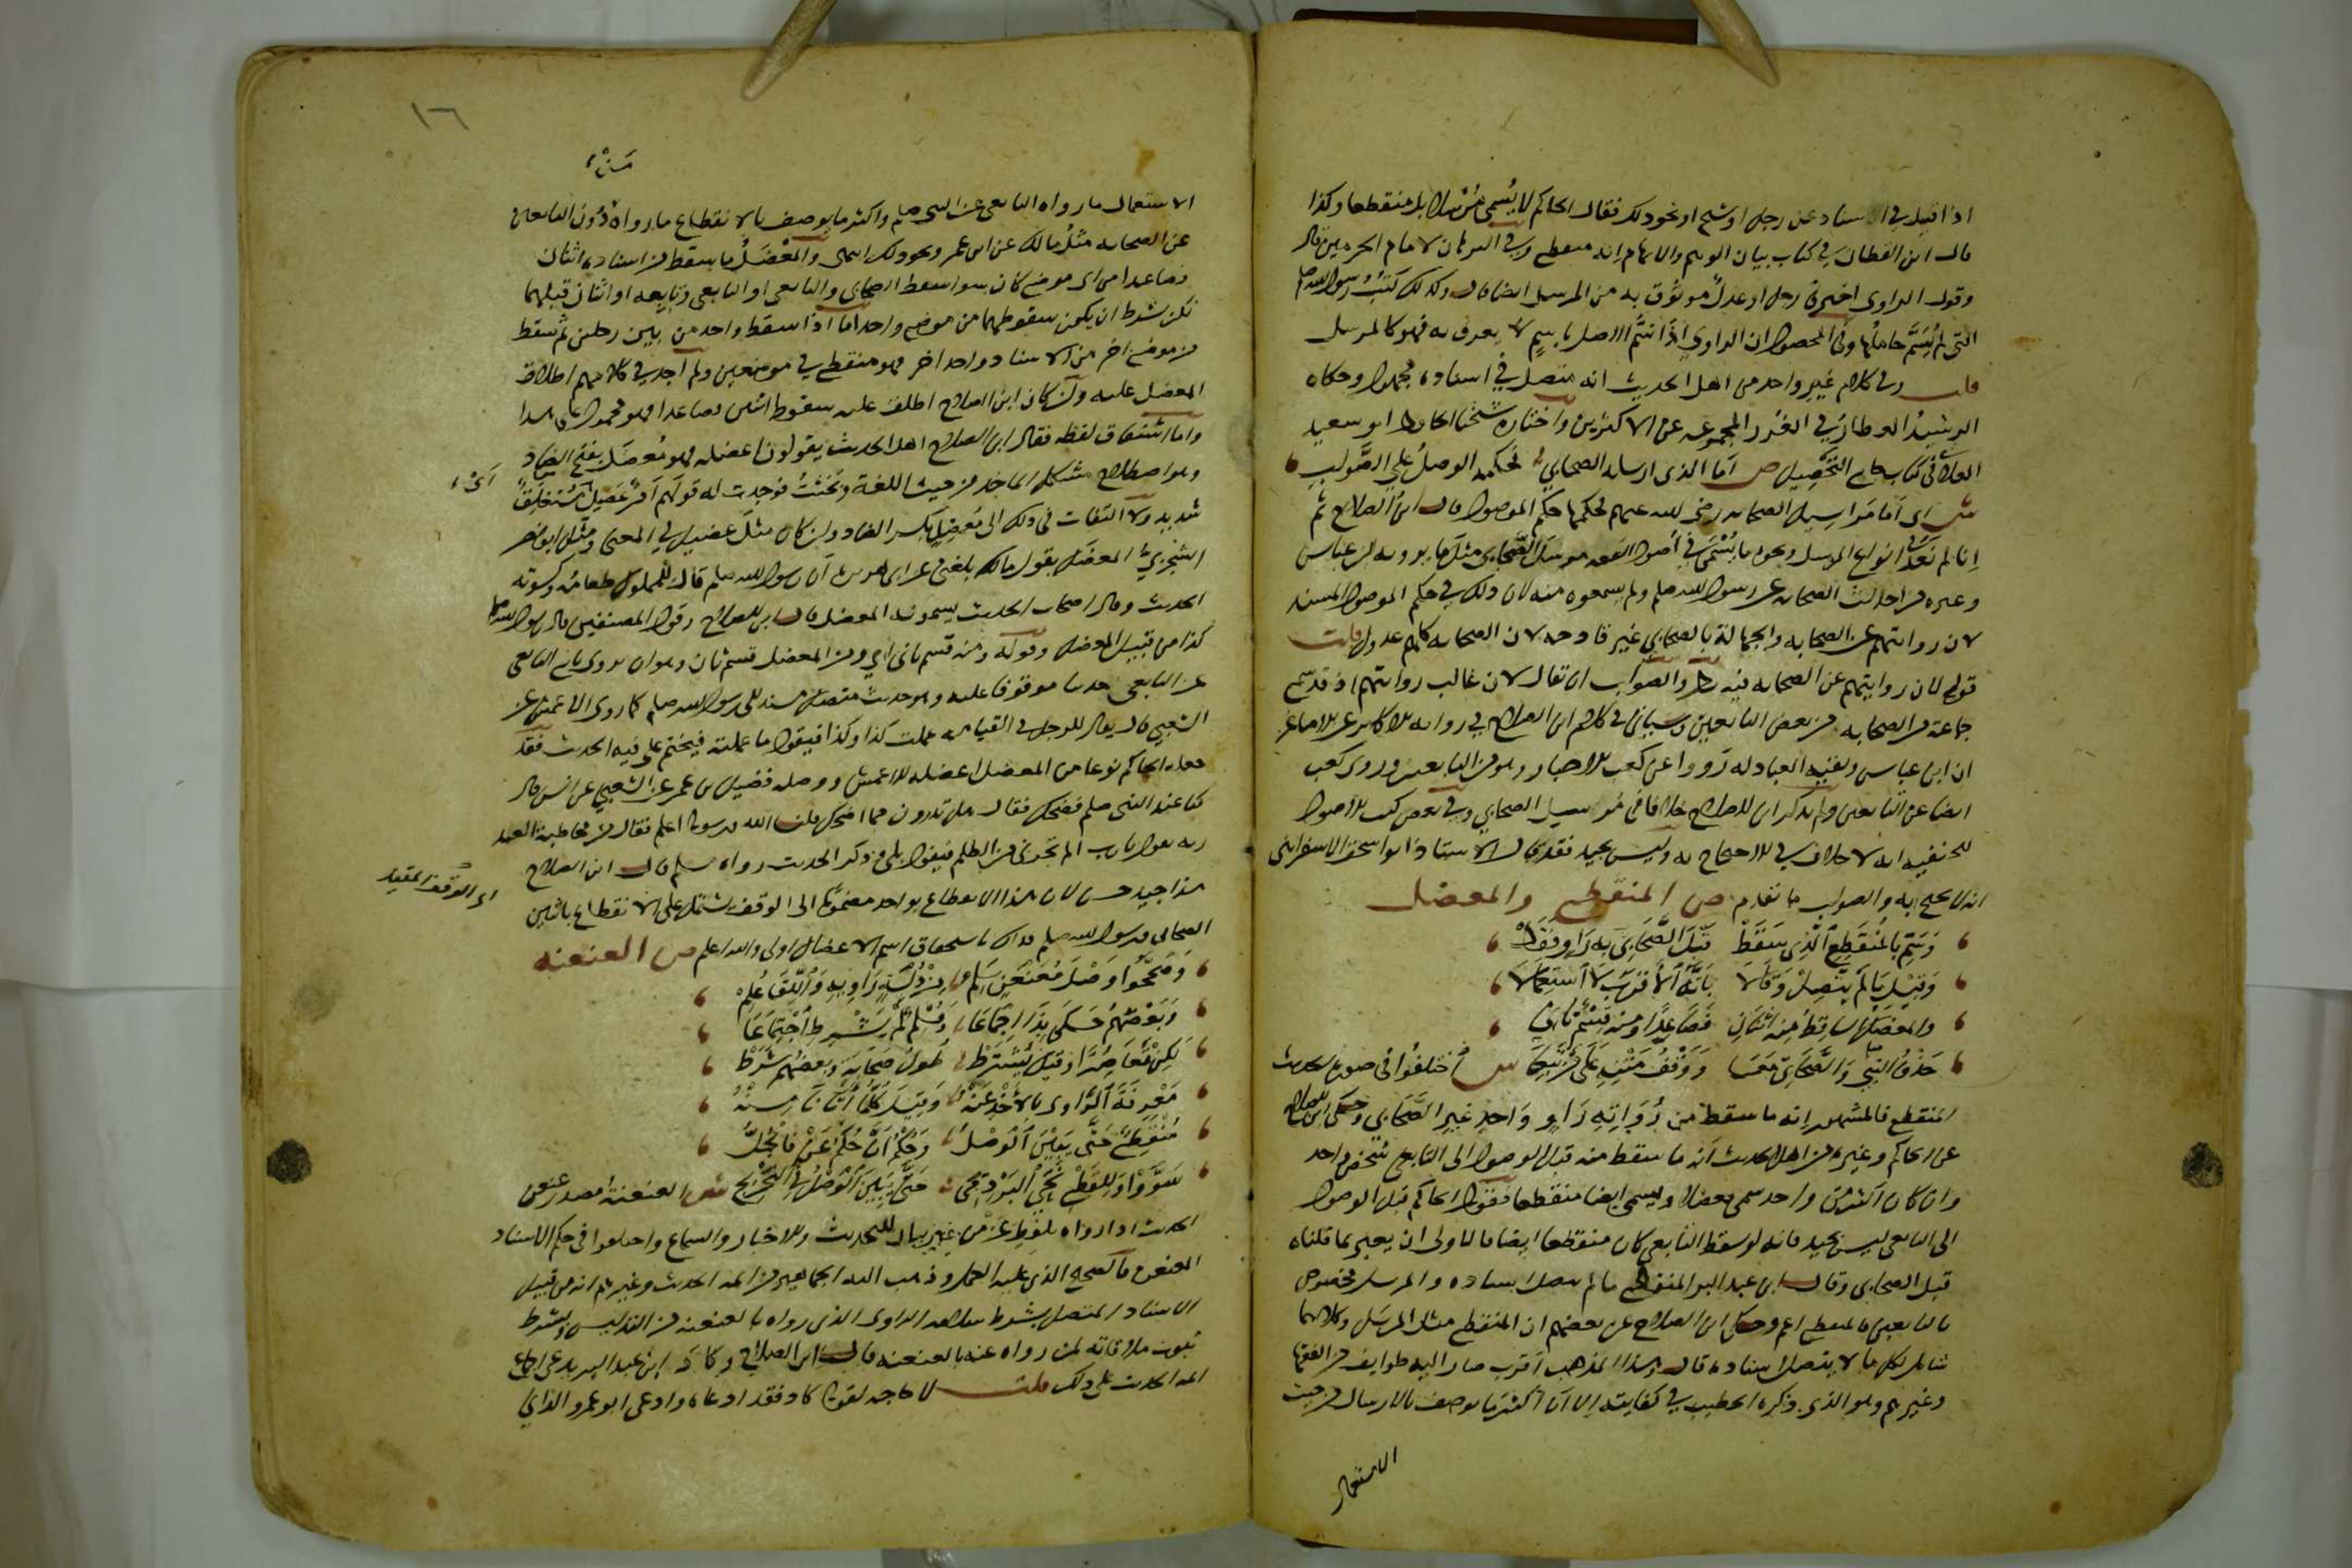 اذا قيل في الاسناد عن رجل او شيخ او نحو ذلك فقال الحاكم لا يُسمى مُرسلا بل منقطعا وكذا
قال ابن القطان في كتاب بيان الوهم والايهام انه منقطع وفي البرهان لامام الحرمين قال
وقول الراوي اخبرني رجل او عدلٌ موثوق به من المرسل ايضا قال وكذلك كتبُ رسول الله صلم
التي لم يُسمَّ حاملُها وفي المحصول ان الراوي اذا سمَّى الاصل باسمٍ لا يعرف به فهو كالمرسل
قلت وفي كلام غير واحد من اهل الحديث انه متصل في اسناده مجهول وحكاه
الرشيدُ العطار في الغُرر المجموعه عن الاكثرين واختاره شيخنا الحافظ ابو سعيد
العلائي في كتاب جامع التحصيل ص اما الذي ارسله الصحابي فحكمه الوصلُ على الصَّواب
ش اي اما مَراسيل الصحابه رضي الله عنهم فحكمها حكم الموصول قال ابن الصلاح ثم
انا لم نَعُدَّ في انواع المرسل ونحوه ما يُسمَّى في اصول الفقه مرسَل الصَّحابي مثل ما يرويه ابن عباس
وغيره من احداث الصحابه عن رسول الله صلم ولم يسمعوه منه لان ذلك في حكم الموصول المسند
لان روايتهم عن الصحابه والجهالة بالصحابي غير قادحه لان الصحابه كلهم عدول قلت
قوله لان روايتهم عن الصحابه فيه نظر والصواب ان يقال لان غالب روايتهم اذ قد سمع
جماعة من الصحابه من بعض التابعين وسياتي في كلام ابن الصلاح في رواية الاكابر عن الاصاغر
ان ابن عباس وبقيه العبادله رَووا عن كعب الاحبار وهو من التابعين وروى كعب
ايضا عن التابعين ولم يذكر ابن الصلاح خلافا في مُرسل الصحابي وفي بعض كتب الاصول
للحنفيه انه لا خلاف في الاحتجاج به وليس بجيد فقد قال الاستاذ ابو اسحق الاسفرايني
انه لا يحتج به والصواب ما تقدم ص المنقطع والمعضل
وَسَمِّ بالمُنقَطِعِ الَّذِي سَقَطْ قَبْلَ الصَّحابيِّ بِه رَاوٍ فَقَطْ
وَقِيْلَ مَا لَمْ يَتَّصِلْ وَقَالَا بِأنَّهُ الأَقْرَبُ لَا استِعمَالَا
وَالمُعْضَلُ السَّاقِطُ مِنه اثنَانِ فَصَاعِدًا وَمِنه قِسْمٌ ثَاني
حَذْفُ النَّبِيِّ وَالصَّحَابِيِّ مَعَا وَوَقْفُ مَتْنِهِ عَلَى مَنْ تَبِعَا ش اختلفُوا في صورة الحديث
المنقطع فالمشهور انه ما سقط من رُوَاتِهِ رَاوٍ وَاحدٍ غير الصَّحَابي وحكى ابن الصلاح
عن الحاكم وغيره من اهل الحديث انه ما سقط منه قبل الوصول الى التابعي شخص واحد
وان كان اكثر من واحد سمى معضلا ويسمى ايضا منقطعا فقول الحاكم قبل الوصول
الى التابعي ليس بجيد فانه لو سقط التابعي كان منقطعا ايضا فالاولى ان يعبر بما قلناه
قبل الصحابي وقال ابن عبد البر المنقطع ما لم يتصل اسناده والمرسل مخصوص
بالتابعين فالمنقطع اعم وحكى ابن الصلاح عن بعضهم ان المنقطع مثل المرسَل وكلاهما
شامل لكل ما لا يتصل اسناده قال وهذا المذهب اقرب صار اليه طوايف من الفقها
وغيرهم وهو الذي ذكره الخطيب في كفايته الا ان اكثر ما يوصف بالارسال من حيث
الاستعمال
١٦
الاستعمال ما رواه التابعي عن النبي صلم واكثر ما يوصف بالانقطاع ما رواه مَن دُون التابعين
عن الصحابه مثلُ مالك عن ابن عمر ونحو ذلك انتهى والمُعْضَلُ ما سقط من اسناده اثنان
فصاعدا من اي موضع كان سوا سقط الصحابي والتابعي او التابعي وتابعه او اثنان قبلهما
لكن شرط ان يكون سقوطهما من موضع واحد اما اذا سقط واحد من بين رجلين ثم سقط
من موضع اخر من الاسناد واحد اخر فهو منقطع في موضعين ولم اجد في كلامهم اطلاق
المعضل عليه وان كان ابن الصلاح اطلق عليه سقوط اثنين فصاعدا فهو محمول على هذا
واما اشتقاق لفظه فقال ابن الصلاح اهل الحديث يقولون اعضله فهو مُعضَل بفتح الضاد
وهو اصطلاح مشكل الماخذ من حيث اللغة وبَحَثْتُ فوجدت له قولهم امرٌ عَضِيلٌ اي مُستغلِقٌ
شديد ولا التفات في ذلك الى مُعضِلٍ بكسر الضاد وان كان مثلَ عضيل في المعنى ومثَّل ابو نصر
السجزيُّ المعضَل بقول مالك بلغني عن ابي هريرة ان رسول الله صلم قال للمملوك طعامُه وكسوته
الحديث وقال اصحاب الحديث يسمونه المعضل قال ابن الصلاح وقول المصنفين قال رسول الله صلم
كذا من قبيل المعضل وقوله ومنه قسم ثاني اي ومن المعضل قسم ثان وهو ان يروي تابع التابعي
عن التابعي حديثا موقوفا عليه وهو حديث متصل مسند الى رسول الله صلم كما روى الاعمش عن
الشعبي قال يقال للرجل في القيامه عملت كذا وكذا فيقول ما عملته فيختم على فيه الحديث فقد
جعله الحاكم نوعا من المعضل اعضله الاعمش ووصله فضيل بن عمرو عن الشعبي عن انس قال
كنا عند النبي صلم فضحك فقال هل تدرون مما اضحك قلنا الله ورسوله اعلم فقال من مخاطبة العبد
ربه يقول يا رب الم تجرني من الظلم فيقول بلى وذكر الحديث رواه مسلم قال ابن الصلاح
هذا جيد حسن لان هذا الانقطاع بواحد مضمومًا الى الوقف يشتمل على الانقطاع باثنين
اي الوقف المقيد
الصحابي ورسول الله صلم فذلك باستحقاق اسم الاعضال اولى والله اعلم ص العنعنه
وَصَحَّحُوا وَصْلَ مُعَنْعَنٍ سَلِمْ مِنْ دُلْسَةٍ رَاوِيهِ وَالِلّقَا عُلِمْ
وَبَعْضُهُمْ حَكَى بِذَا اجمَاعَا وَمُسْلمٌ لَمْ يَشْرِطِ اجْتِمَاعَا
لكِنْ تَعَاصُرًا وَقيلَ يُشْتَرَطْ طُولُ صَحَابَةٍ وَبَعْضُهُمْ شَرَطْ
مَعْرِفَةَ الرَّاوي بِالأَخْذِ عَنْهُ وَقِيلَ كُلُّ مَا أَتَانَا مِنْهُ
مُنْقَطِعٌ حَتَّى يَبِينَ الْوَصْلُ وَحُكْمُ أَنَّ حُكْمُ عَنْ فَالْجُلُّ
سَوَّوْا وَلِلقَطْعِ نَحَى الْبَرْدِيجِي حَتَّى يَبِينَ الْوَصْلُ فِي التَّخْرِيج ش العنعنة مصدر عنعن
الحديث اذا رواه بلفظ عن من غير بيان للتحديث والاخبار والسماع واختلفوا في حكم الاسناد
المعنعن فالصحيح الذي عليه العمل وذهب اليه الجماهير من ائمه الحديث وغيرهم انه من قبيل
الاسناد المتصل بشرط سلامه الراوي الذي رواه بالعنعنه من التدليس وبشرط
ثبوت ملاقاته لمن رواه عنه بالعنعنه قال ابن الصلاح وكاد ابن عبد البر يدعي اجماع
ائمه الحديث على ذلك قلت لا حاجه لقوله كاد فقد ادعاه وادعى ابو عمرو الداني